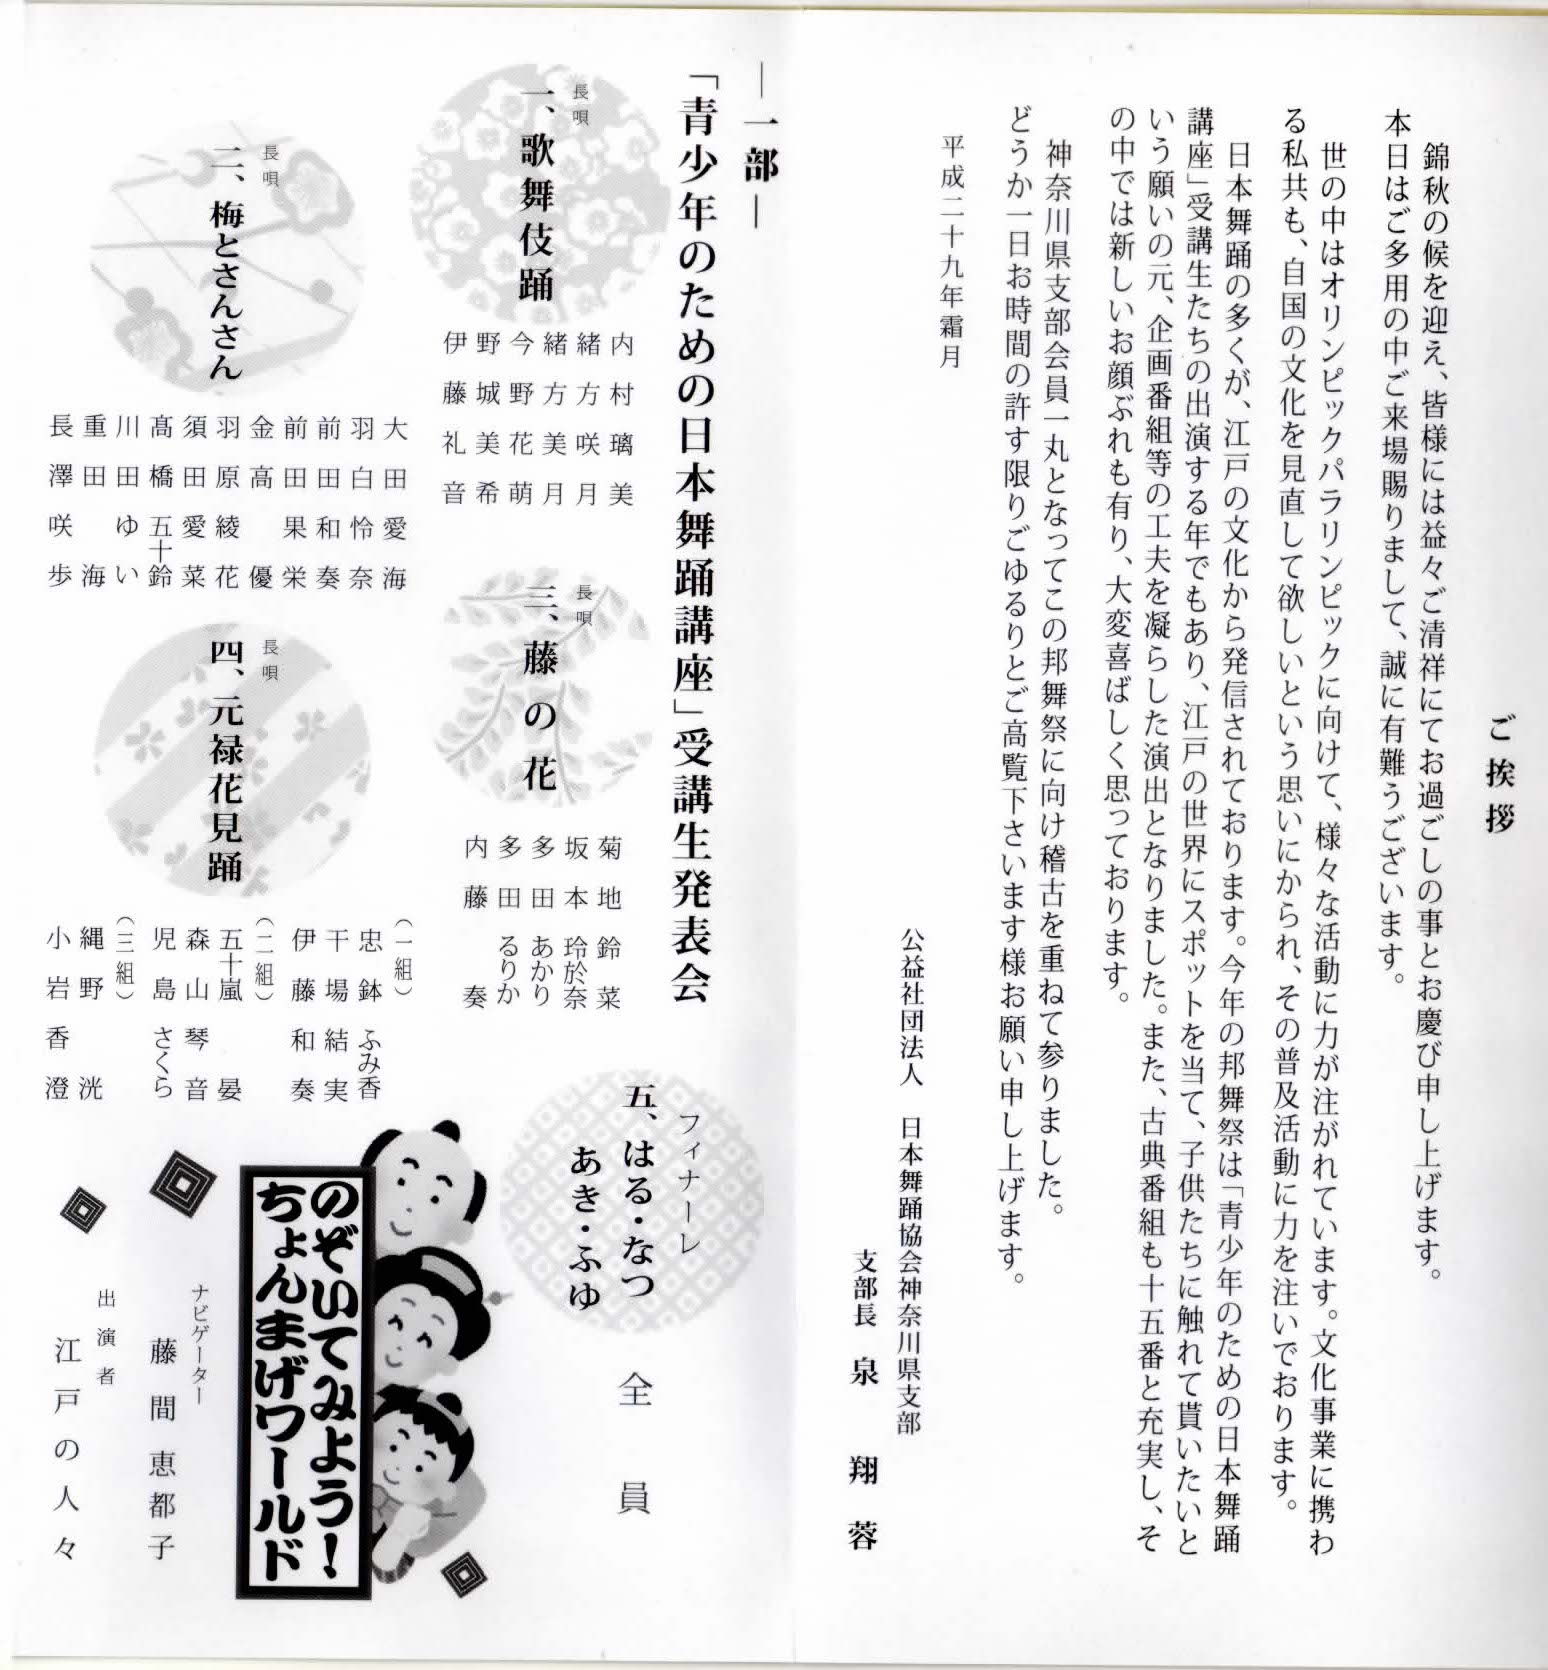 ご挨拶
錦秋の候を迎え、皆様には益々ご清祥にてお過ごしの事とお慶び申し上げます。
本日はご多用の中ご来場賜りまして、誠に有難うございます。
世の中はオリンピックパラリンピックに向けて、様々な活動に力が注がれています。文化事業に携わ
る私共も、自国の文化を見直して欲しいという思いにかられ、その普及活動に力を注いでおります。
日本舞踊の多くが、江戸の文化から発信されております。今年の邦舞祭は「青少年のための日本舞踊
講座」受講生たちの出演する年でもあり、江戸の世界にスポットを当て、子供たちに触れて貰いたいと
いう願いの元、企画番組等の工夫を凝らした演出となりました。また、古典番組も十五番と充実し、そ
の中では新しいお顔ぶれも有り、大変喜ばしく思っております。
神奈川県支部会員一丸となってこの邦舞祭に向け稽古を重ねて参りました。
どうか一日お時間の許す限りごゆるりとご高覧下さいます様お願い申し上げます。
平成二十九年霜月
公益社団法人 日本舞踊協会神奈川県支部
支部長 泉 翔蓉
―一部―
「青少年のための日本舞踊講座」受講生発表会
長唄
一、歌舞伎踊
内村璃美
緒方咲月
緒方美月
今野花萌
野城美希
伊藤礼音
長唄
二、梅とさんさん
大田愛海
羽白怜奈
前田和奏
前田果栄
金高優
羽原綾花
須田愛菜
髙橋五十鈴
川田ゆい
重田海
長澤咲歩
長唄
三、藤の花
菊地鈴菜
坂本玲於奈
多田あかり
多田るりか
内藤奏
長唄
四、元禄花見踊
（一組）
忠鉢ふみ香
干場結実
伊藤和奏
（二組）
五十嵐晏
森山琴音
児島さくら
（三組）
縄野洸
小岩香澄
フィナーレ
五、はる・なつ
あき・ふゆ
全員
のぞいてみよう！
ちょんまげワールド
ナビゲーター
藤間恵都子
出演者
江戸の人々